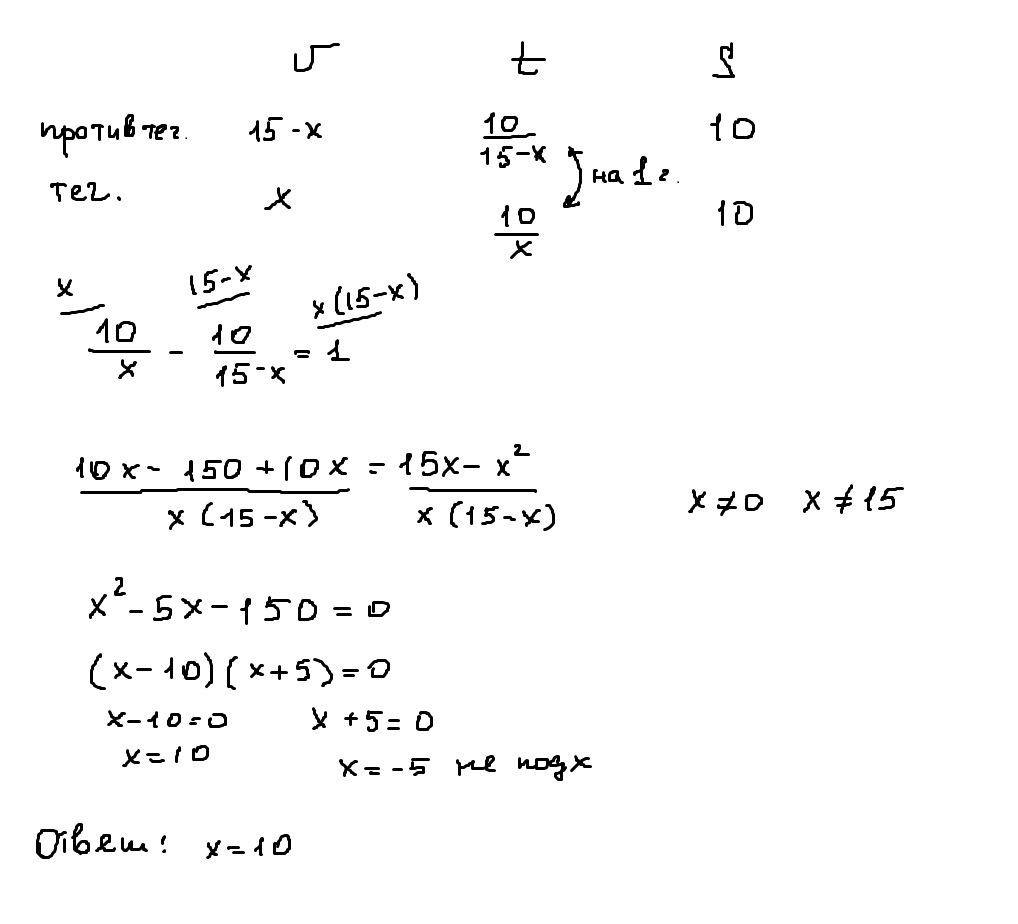 v t S
против теч. 15-x 10/(15-x) 10
на 1 ч.
теч. x 10/x 10
x 15-x x(15-x)
10/x - 10/(15-x) = 1
(10x - 150 + 10x)/(x(15-x)) = (15x - x²)/(x(15-x)) x≠0 x≠15
x² - 5x - 150 = 0
(x-10)(x+5)=0
x-10=0 x+5=0
x=10 x=-5 не подх
Ответ: x=10